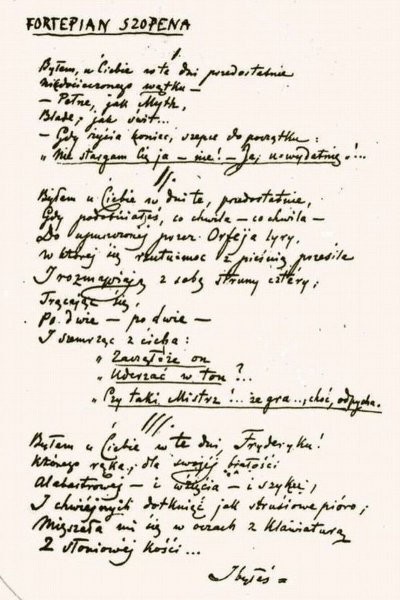 FORTEPIAN SZOPENA
I.
Byłem u Ciebie w te dni przedostatnie
Niedocieczonego wątku —
— Pełne, jak Myth,
Blade, jak świt...
— Gdy życia koniec, szepce do początku:
„Nie stargam Cię ja — nie! — Ja, uwydatnię!...
II.
Byłem u Ciebie w dni te, przedostatnie,
Gdy podobniałeś, co chwila — co chwila —
Do upuszczonej przez Orfeja lyry,
W której się rzutu-moc z pieśnią przesila
I rozmawiają z sobą struny cztéry;
Trącając się,
Po dwie — po dwie —
I szemrząc z cicha:
„Zacząłże on
„Uderzać w ton?...
„Czy taki Mistrz!... że gra.., choć, odpycha.
III.
Byłem u Ciebie w te dni Fryderyku!
Którego ręka, dla swojéj białości
Alabastrowej — i wzięcia — i szyku,
I chwiejnych dotknięć jak strusiowe pióro;
Mięszała mi się w oczach z klawiaturą
Z słoniowej kości...
I byłeś =